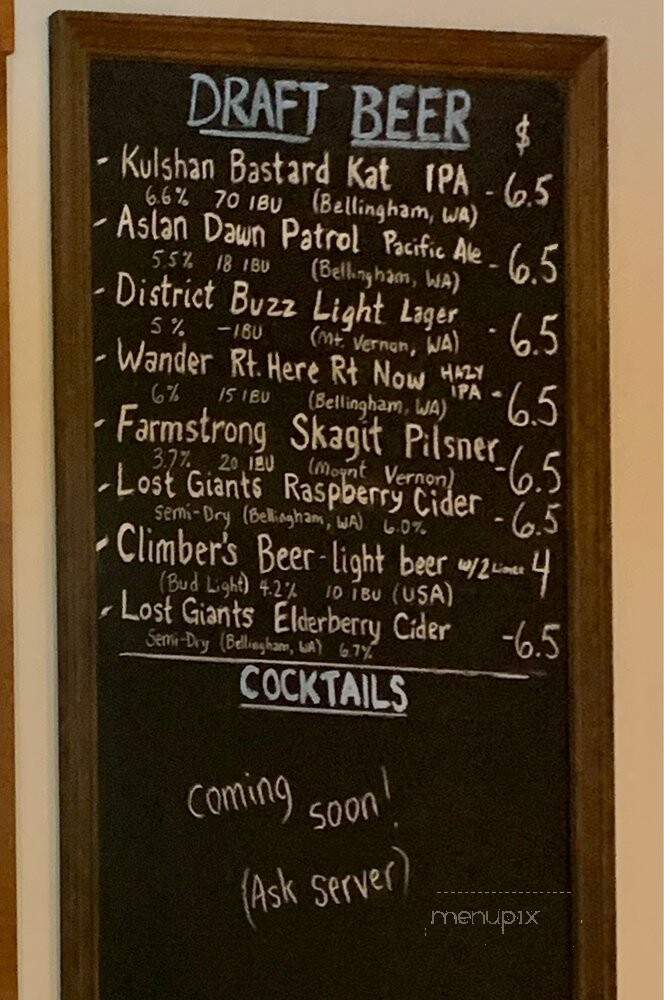 DRAFT BEER
$
- Kulshan Bastard Kat IPA - 6.5
6.6% 70 IBU (Bellingham, WA)
- Aslan Dawn Patrol Pacific Ale - 6.5
5.5% 18 IBU (Bellingham, WA)
- District Buzz Light Lager - 6.5
5% - IBU (Mt. Vernon, WA)
- Wander Rt. Here Rt Now HAZY IPA - 6.5
6% 15 IBU (Bellingham, WA)
- Farmstrong Skagit Pilsner - 6.5
3.7% 20 IBU (Mount Vernon)
- Lost Giants Raspberry Cider - 6.5
Semi-Dry (Bellingham, WA) 6.0%
- Climber's Beer - light beer w/2 Limes 4
(Bud Light) 4.2% 10 IBU (USA)
- Lost Giants Elderberry Cider - 6.5
Semi-Dry (Bellingham, WA) 6.7%
COCKTAILS
Coming soon!
(Ask server)
menupix